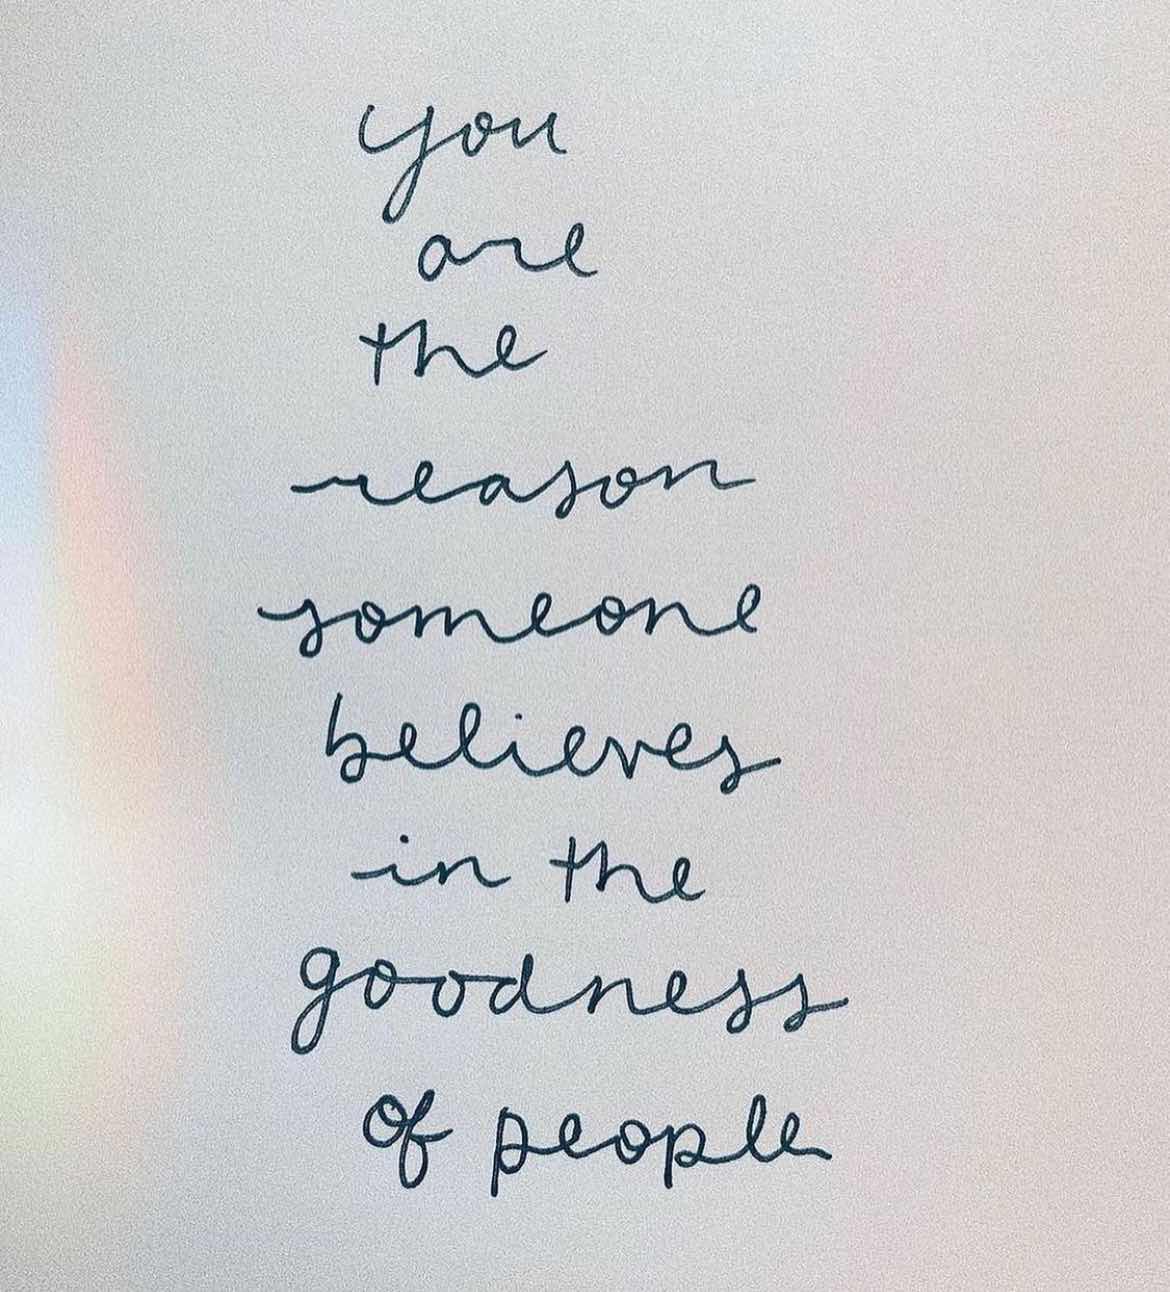 you
are
the
reason
someone
believes
in the
goodness
of people